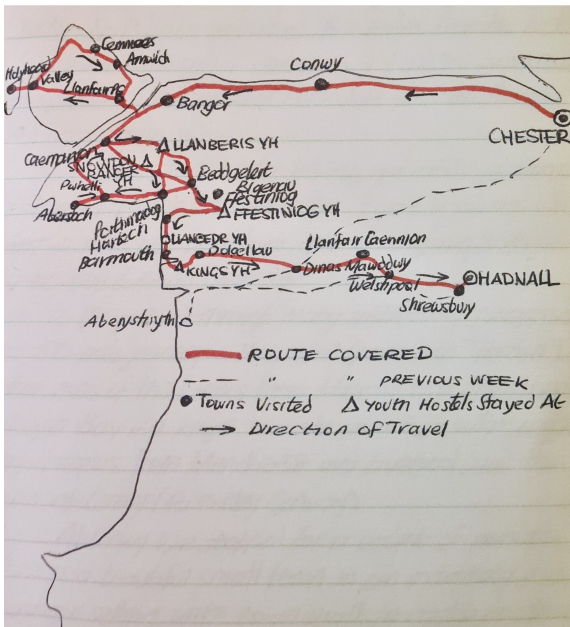 Cemmaes
Amwlch
Holyhead
Valley
Llanfair PG
Conwy
Bangor
CHESTER
Caernarvon
LLANBERIS YH
SNOWDON
RANGER
YH
Beddgelert
Pwhelli
Abersoch
Blaenau
Ffestiniog
FFESTINIOG YH
Porthmadog
Harlech
LLANBEDR YH
Barmouth
Dolgellau
KINGS YH
Llanfair Caennion
Dinas Mawddwy
Welshpool
HADNALL
Shrewsbury
Aberystwyth
ROUTE COVERED
" " PREVIOUS WEEK
Towns Visited
Youth Hostels Stayed At
Direction of Travel